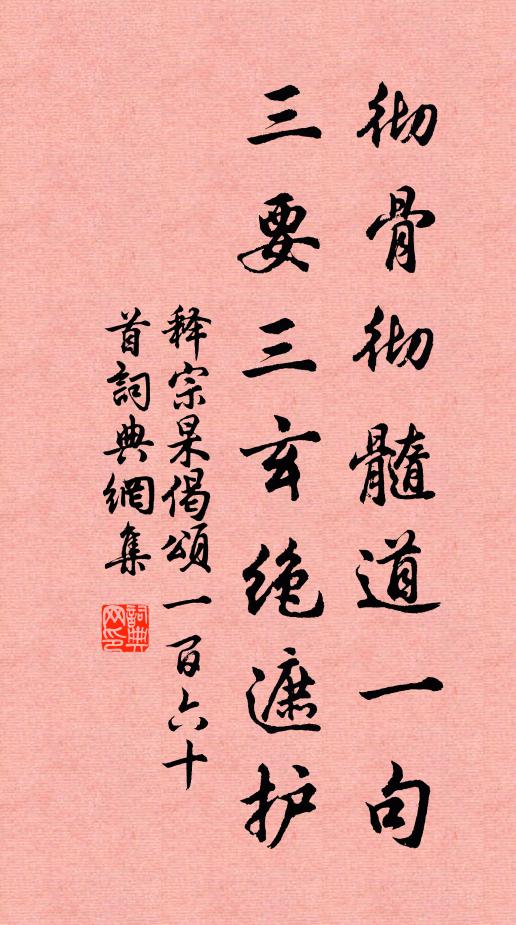 彻骨彻髓道一句
三要三玄绝遮护
释宗杲偈颂一百六十
首词典网集
詞典
网印